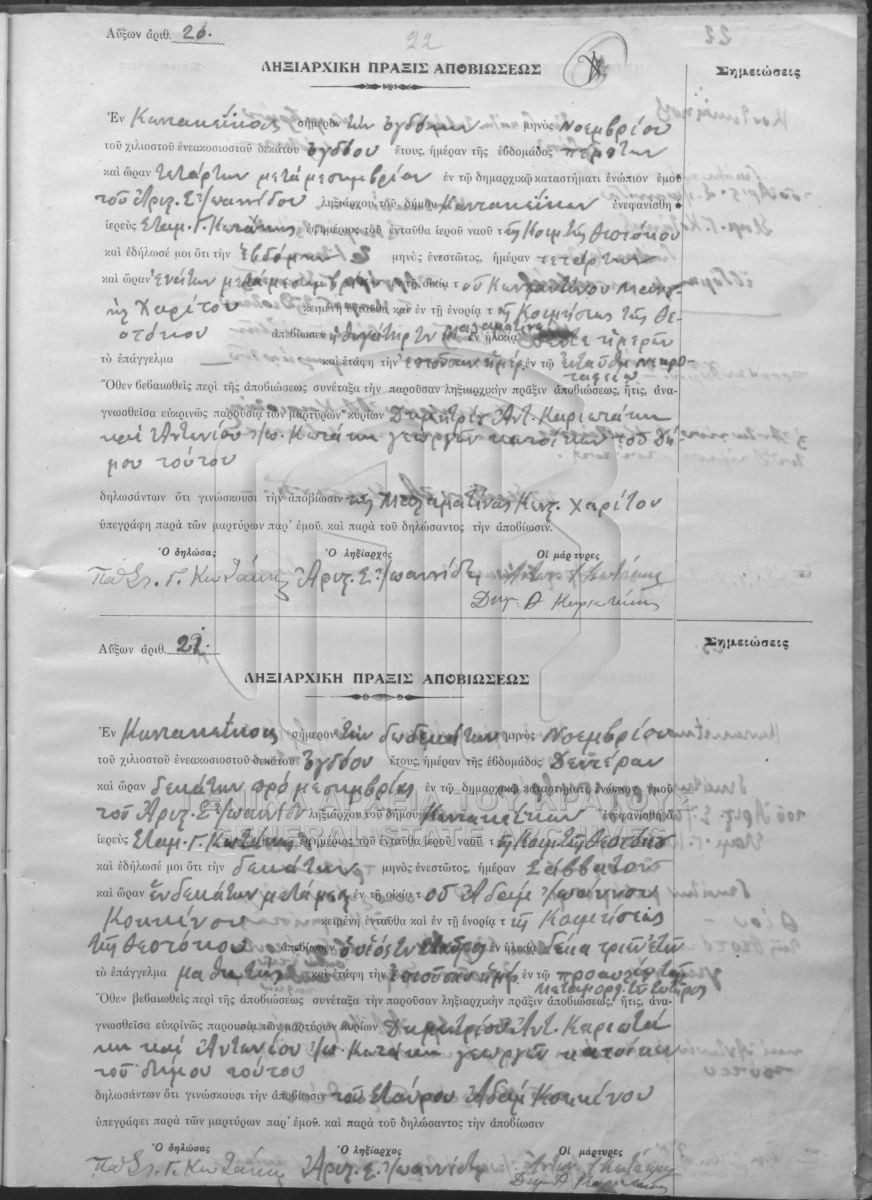 Αὔξων ἀριθ. 20.
22
22
ΛΗΞΙΑΡΧΙΚΗ ΠΡΑΞΙΣ ΑΠΟΒΙΩΣΕΩΣ
Σημειώσεις
Ἐν σήμερον τὴν ὀγδόην μηνὸς Νοεμβρίου
τοῦ χιλιοστοῦ ἐνεακοσιοστοῦ δεκάτου ὀγδόου ἔτους, ἡμέραν τῆς ἑβδομάδος πέμπτην
καὶ ὥραν τετάρτην μετὰ μεσημβρίαν ἐν τῷ δημαρχικῷ καταστήματι ἐνώπιον ἐμοῦ
τοῦ Ἀριστ. Σ. Ἰωαννίδου ληξιάρχου τοῦ δήμου ἐνεφανίσθη ὁ
ἱερεὺς Σταμ. Γ. Κωτάκης ἐφημέριος τοῦ ἐνταῦθα ἱεροῦ ναοῦ τῆς Κοιμ. τῆς Θεοτόκου
καὶ ἐδήλωσέ μοι ὅτι τὴν ἑβδόμην μηνὸς ἐνεστῶτος, ἡμέραν τετάρτην
καὶ ὥραν ἐνάτην μετὰ μεσημβρίαν ἐν τῇ οἰκίᾳ τοῦ Κωνσταντίνου
Χαρίτου κειμένῃ ἐνταῦθα καὶ ἐν τῇ ἐνορίᾳ τῆς Κοιμήσεως τῆς Θε-
οτόκου ἀπεβίωσεν ἡ θυγάτηρ των Μαλαματίνα ἐν ἡλικίᾳ ἡμερῶν
τὸ ἐπάγγελμα — καὶ ἐτάφη τὴν ἐπιοῦσαν ἡμέρ. ἐν τῷ ἐνταῦθα νεκρο-
ταφείῳ
Ὅθεν βεβαιωθεὶς περὶ τῆς ἀποβιώσεως συνέταξα τὴν παροῦσαν ληξιαρχικὴν πρᾶξιν ἀποβιώσεως, ἥτις, ἀνα-
γνωσθεῖσα εὐκρινῶς παρουσίᾳ τῶν μαρτύρων κυρίων Δημητρίου Ἀντ. Καριωτάκη
καὶ Ἀντωνίου Ἰω. Κωτάκη γεωργῶν κατοίκων τοῦ δή
μου τούτου
δηλωσάντων ὅτι γινώσκουσι τὴν ἀποβίωσιν τῆς Μαλαματίνας Κωνστ. Χαρίτου
ὑπεγράφη παρὰ τῶν μαρτύρων παρ' ἐμοῦ. καὶ παρὰ τοῦ δηλώσαντος τὴν ἀποβίωσιν.
Ὁ δηλώσας Ὁ ληξίαρχος Οἱ μάρτυρες
Παπᾶ Στ. Γ. Κωτάκης Ἀριστ. Σ. Ἰωαννίδης Ἀντων. Ι. Κωτάκης
Δημ. Α Καριωτάκης
Αὔξων ἀριθ. 21.
Σημειώσεις
ΛΗΞΙΑΡΧΙΚΗ ΠΡΑΞΙΣ ΑΠΟΒΙΩΣΕΩΣ
Ἐν σήμερον τὴν δωδεκάτην μηνὸς Νοεμβρίου
τοῦ χιλιοστοῦ ἐνεακοσιοστοῦ δεκάτου ὀγδόου ἔτους, ἡμέραν τῆς ἑβδομάδος Δευτέραν
καὶ ὥραν δεκάτην πρὸ μεσημβρίας ἐν τῷ δημαρχικῷ καταστήματι ἐνώπιον ἐμοῦ
ΓΕΝΙΚΑ ΑΡΧΕΙΑ ΤΟΥ ΚΡΑΤΟΥΣ
τοῦ Ἀριστ. Σ. Ἰωαννίδου ληξιάρχου τοῦ δήμου ἐνεφανίσθη ὁ
GENERAL STATE ARCHIVES
ἱερεὺς Σταμ. Γ. Κωτάκης ἐφημέριος τοῦ ἐνταῦθα ἱεροῦ ναοῦ τῆς Κοιμ. τῆς Θεοτόκου
καὶ ἐδήλωσέ μοι ὅτι τὴν δεκάτην μηνὸς ἐνεστῶτος, ἡμέραν Σάββατον
καὶ ὥραν ἑνδεκάτην μετὰ μεσ. ἐν τῇ οἰκίᾳ τοῦ Ἀδαμ. Ἰωάννου
Κοκκίνου κειμένῃ ἐνταῦθα καὶ ἐν τῇ ἐνορίᾳ τῆς Κοιμήσεως
τῆς Θεοτόκου ἀπεβίωσεν ὁ υἱός των Σταῦρος ἐν ἡλικίᾳ δέκα τριῶν ἐτῶν
τὸ ἐπάγγελμα μαθητὴς καὶ ἐτάφη τὴν ἐπιοῦσαν ἡμέρ. ἐν τῷ προαυλίῳ τῆς
Μεταμορφ. τοῦ Σωτῆρος
Ὅθεν βεβαιωθεὶς περὶ τῆς ἀποβιώσεως συνέταξα τὴν παροῦσαν ληξιαρχικὴν πρᾶξιν ἀποβιώσεως, ἥτις, ἀνα-
γνωσθεῖσα εὐκρινῶς παρουσίᾳ τῶν μαρτύρων κυρίων Δημητρίου Ἀντ. Καριωτά
κη καὶ Ἀντωνίου Ἰω. Κωτάκη γεωργῶν κατοίκων
τοῦ δήμου τούτου
δηλωσάντων ὅτι γινώσκουσι τὴν ἀποβίωσιν τοῦ Σταύρου Ἀδαμ. Κοκκίνου
ὑπεγράφει παρὰ τῶν μαρτύρων παρ' ἐμοῦ. καὶ παρὰ τοῦ δηλώσαντος τὴν ἀποβίωσιν
Ὁ δηλώσας Ὁ ληξίαρχος Οἱ μάρτυρες
Παπᾶ Στ. Γ. Κωτάκης Ἀριστ. Σ. Ἰωαννίδης Ἀντων. Ι. Κωτάκης
Δημ. Α Καριωτάκης